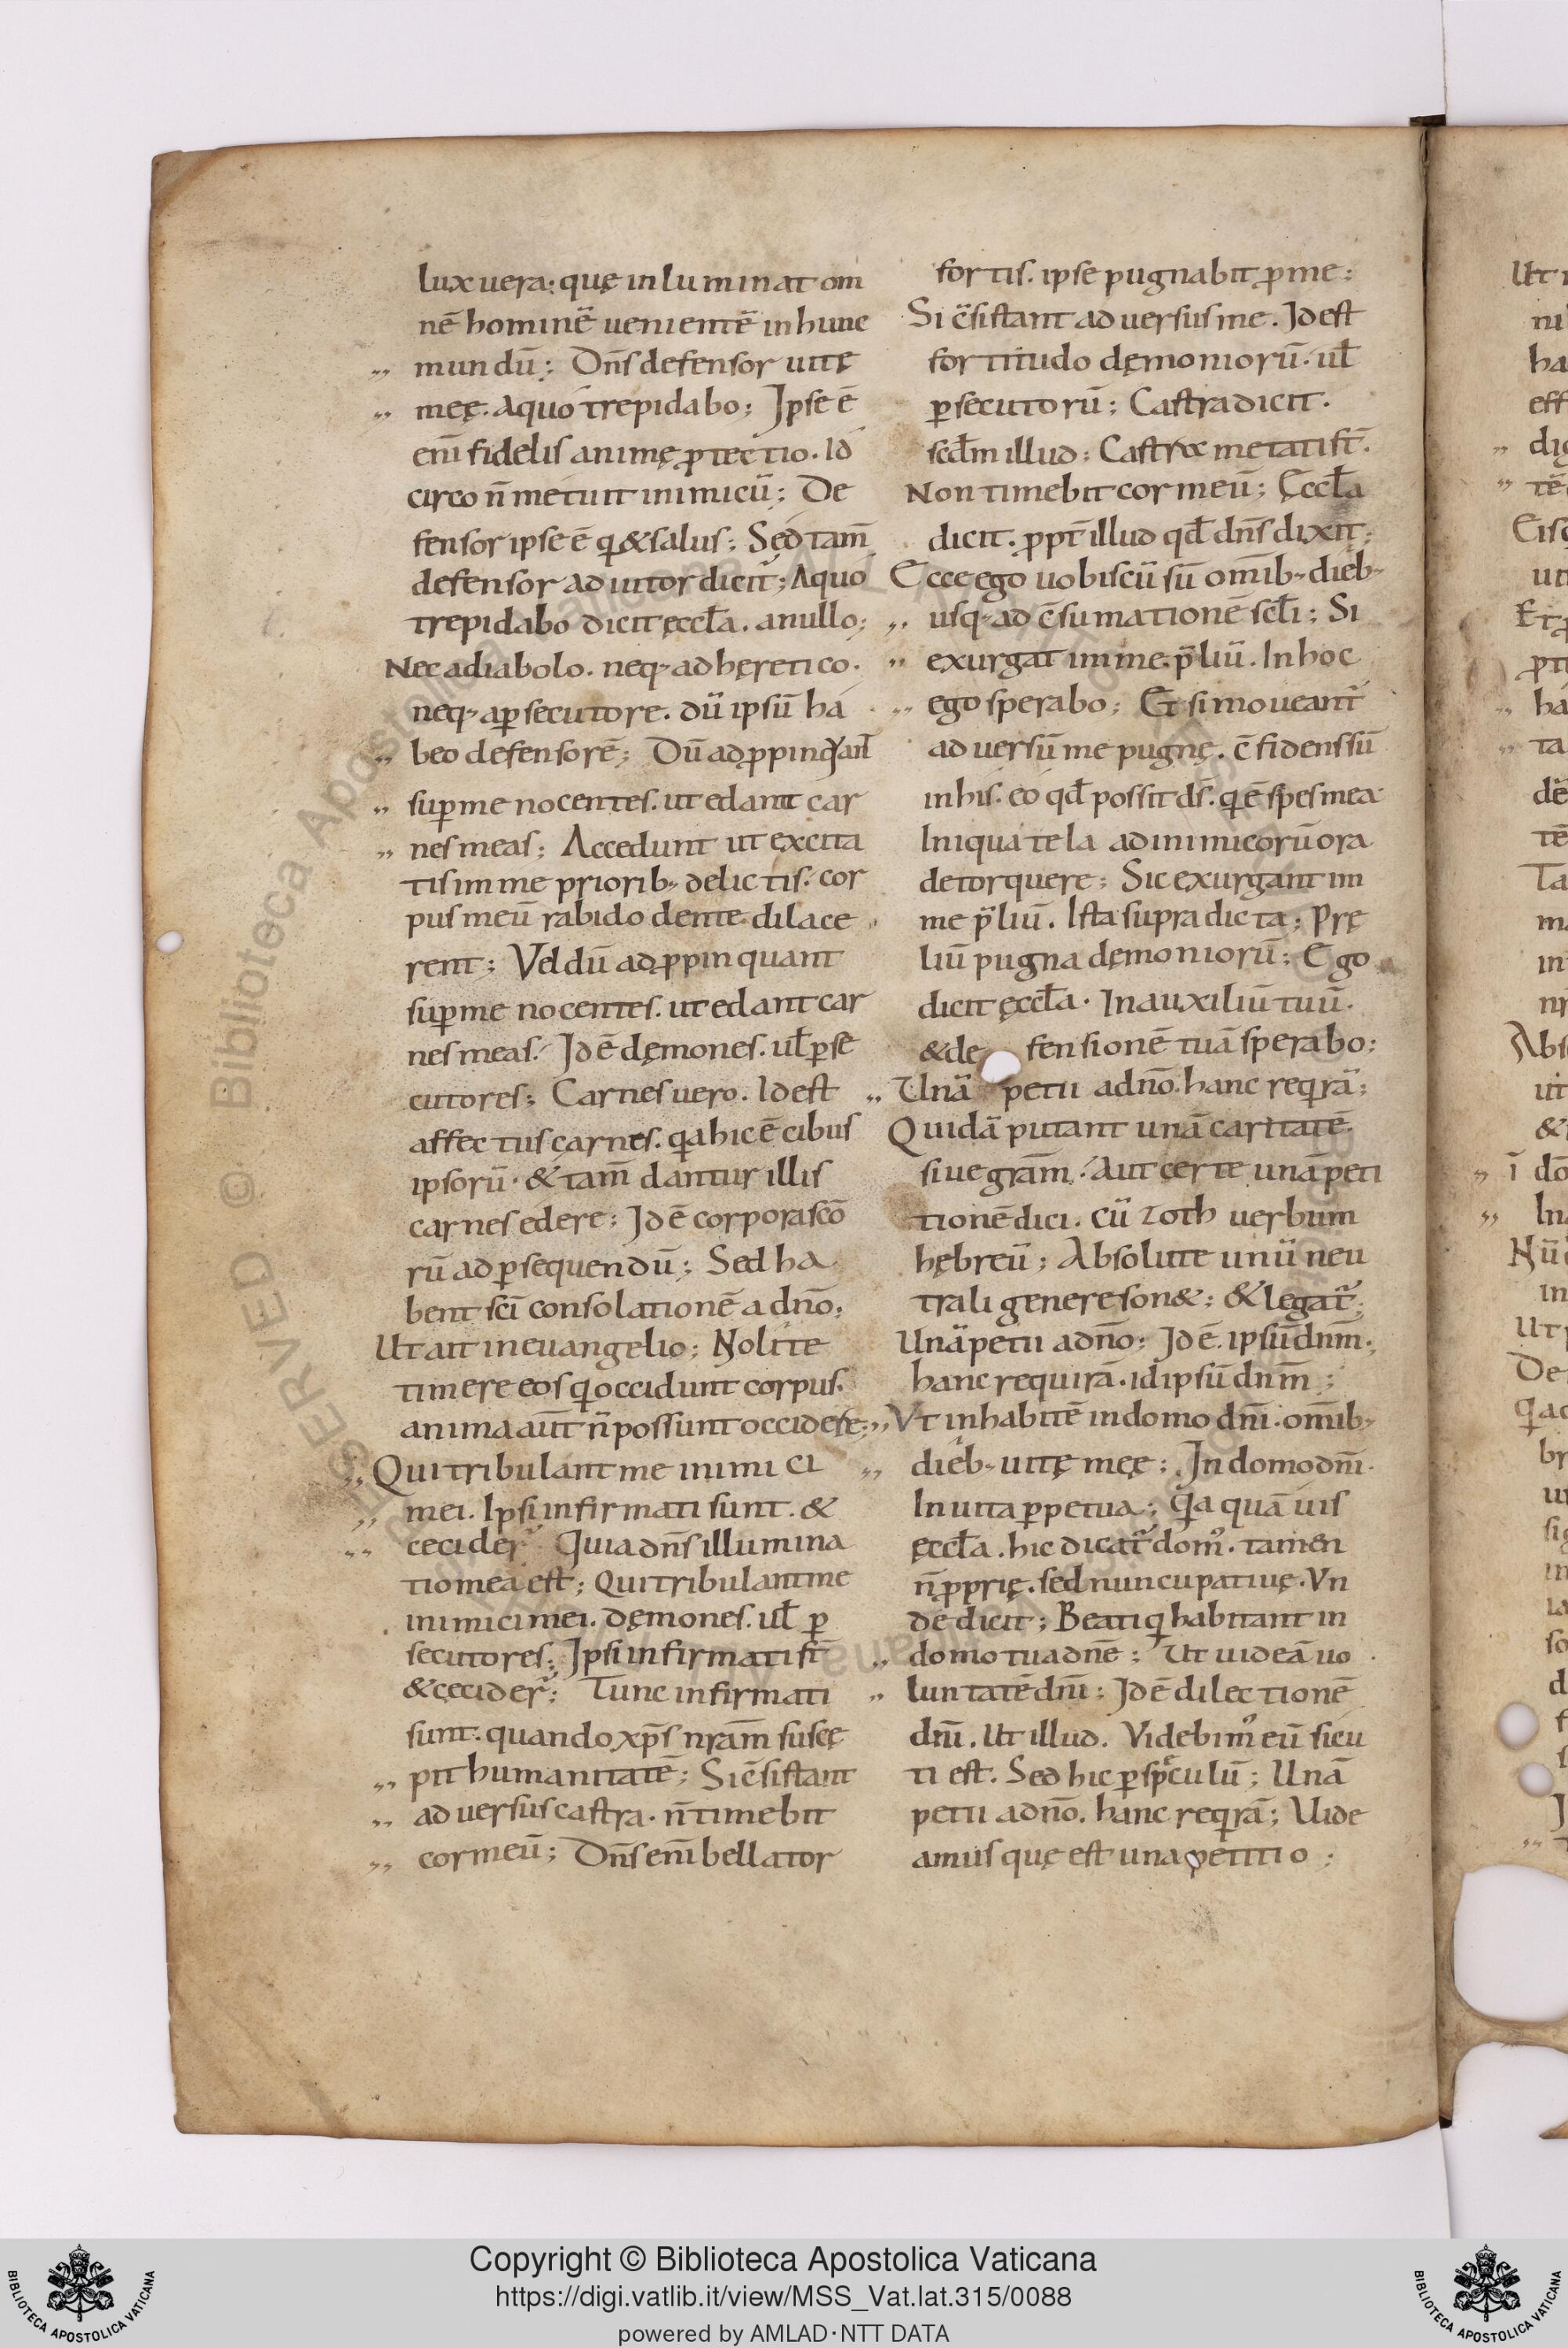 lux uera; quę inluminat om
nē hominē uenientē in hunc
„ mundū; Dn̄s defensor uitę
„ meę. a quo trepidabo; Ipse ē
eni͞ fidelis animę ꝓtectio. Id
circo n̄ metuit inimicū; De
fensor ipse ē q̇ & salus; Sed tam̄
defensor adiutor dicit̄; A quo
trepidabo dicit ęccl̄a. a nullo;
Nec a diabolo. neq; ab hęretico.
neq; a ꝑsecutore. dū ipsū ha
„ beo defensorē; Dū adꝓpinqant
„ suꝑ me nocentes. ut edant car
„ nes meas; Accedunt ut excita
tis im me priorib; delictis. cor
pus meū rabido dente dilace
rent; Vel dū adꝓpinquant
suꝑ me nocentes. ut edant car
nes meas. Id ē dęmones. ul̄ ꝑse
cutores; Carnes uero. Id est
affectus carnes. qa hic ē cibus
ipsorū. & tam̄ dantur illis
carnes edere; Id ē corpora sc̄o
rū ad ꝑsequendū; Sed ha
bent sc̄i consolationē a dn̄o;
Ut ait in euangelio; Nolite
timere eos q̇ occidunt corpus.
anima aūt n̄ possunt occidere;
„ Qui tribulant me inimici
„ mei. Ipsi infirmati sunt. &
„ cecider̄ Quia dn̄s illumina
tio mea est; Qui tribulant me
inimici mei. dęmones. ul̄ ꝑ
secutores; Ipsi infirmati st̄
& cecider̄; Tunc infirmati
sunt. quando xp̄s nr̄am suscę
„ pit humanitatē; Si c̄sistant
„ aduersus castra. n̄ timebit
„ cor meū; Dn̄s eni͞ bellator
fortis. ipse pugnabit ꝓ me;
Si c̄sistant aduersus me. Id est
fortitudo dęmoniorū. ul̄
ꝑsecutorū; Castra dicit.
scd̄m illud; Castra metati st̄.
Non timebit cor meū; Ęccl̄a
dicit. ꝓpt̄ illud qd̄ dn̄s dixit;
Ecce ego uobiscū sū omīb; dieb;
„ usq; ad c̄sumationē scl̄i; Si
„ exurgat im me p̄liū. In hoc
„ ego sperabo; Et si moueant̄
aduersū me pugnę. c̄fidens sū
in his. eo qd̄ possit d̄s. q̇ ē spes mea
Iniqua tela ad inimicorū ora
detorquere; Sic exurgant im
me p̄liū. Ista supra dicta; Prę
liū pugna dęmoniorū; Ego
dicit ęccl̄a. In auxiliū tuū.
& defensionē tuā sperabo;
„ Unā petii a dn̄o. hanc reqrā;
Quidā putant unā caritatē.
siue gr̄am. Aut certe unā peti
tionē dici. cū zoth uerbum
hębreū; Absolute unū neu
trali genere son&; & legat̄;
Unā petii a dn̄o; Id ē. ipsū dn̄m;
hanc requirā. id ipsū dn̄m;
„ Vt inhabitē in domo dn̄i. omīb;
„ dieb; uitę meę; In domo dn̄i.
In uita ꝑpetua; Qa quā uis
ęccl̄a. hic dicat̄ dom᾽. tamen
n̄ ꝓprię. sed nuncupatiuę. Vn
de dicit; Beati q̇ habitant in
„ domo tua dn̄e; Ut uideā uo
„ luntatē dn̄i; Id ē dilectionē
dn̄i. Ut illud. Videbim᾽ eū sicu
ti est. Sed hic ꝑ speculū; Unā
petii a dn̄o. hanc reqrā; Uide
amus quę est una petitio;
Copyright © Biblioteca Apostolica Vaticana
https://digi.vatlib.it/view/MSS_Vat.lat.315/0088
powered by AMLAD·NTT DATA
BIBLIOTECA APOSTOLICA VATICANA
BIBLIOTECA APOSTOLICA VATICANA